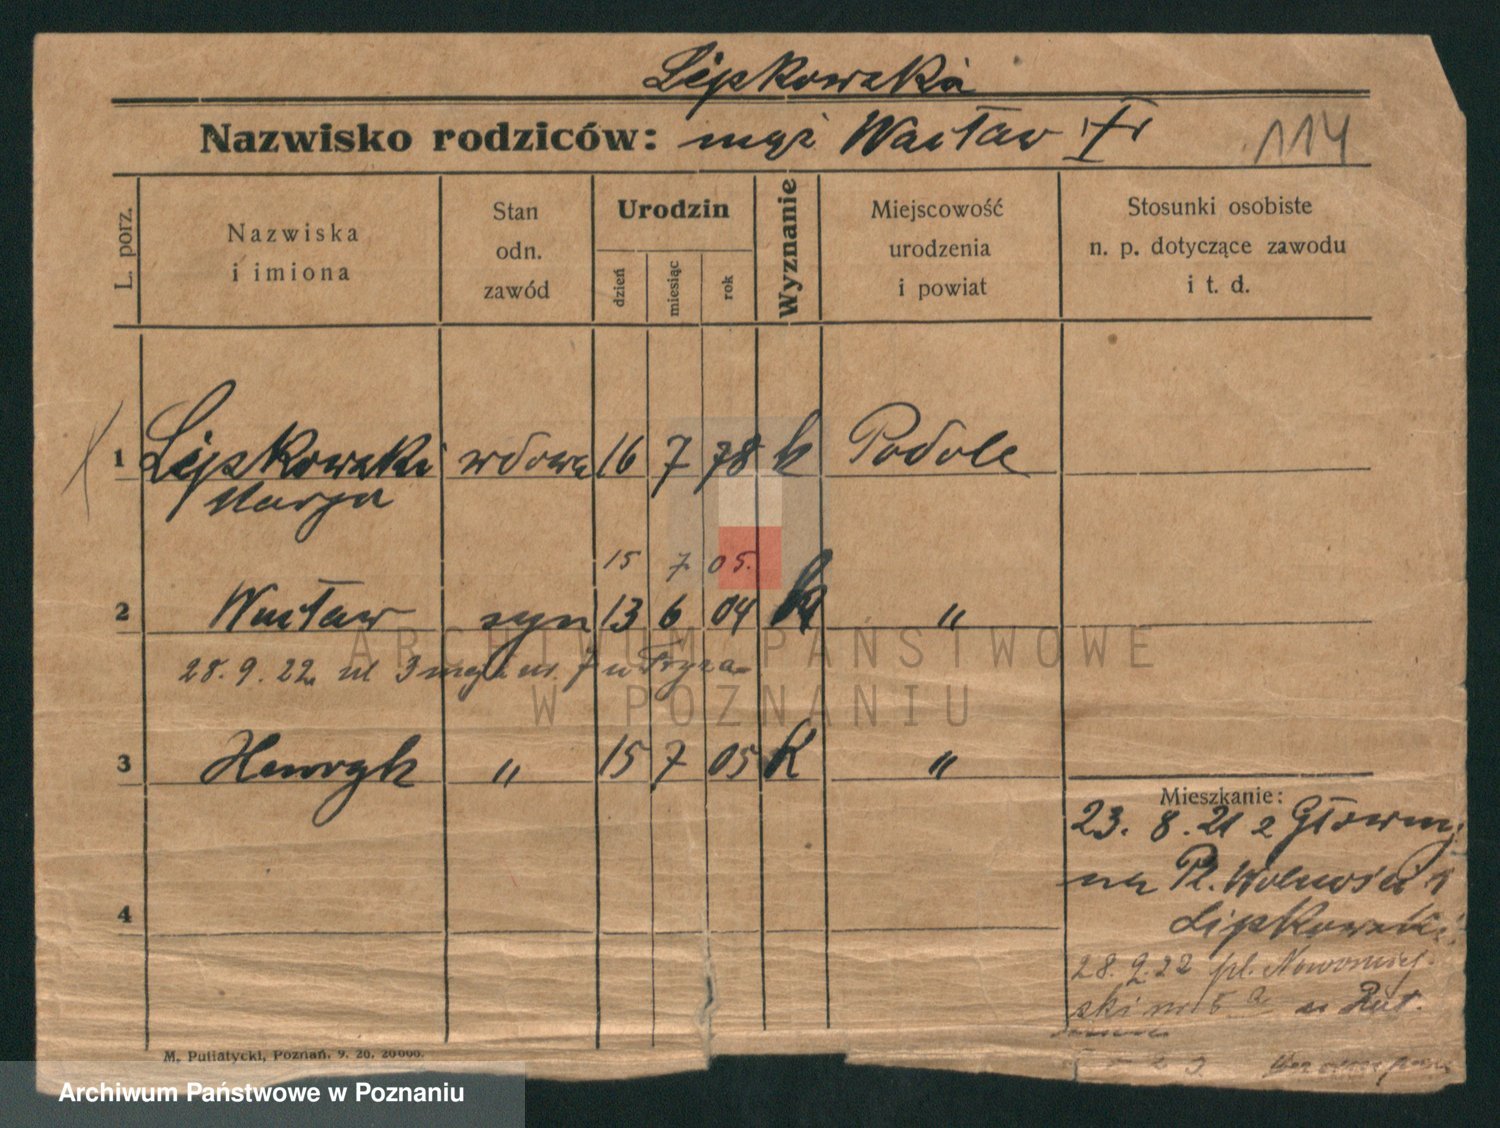 Lipkowska
Nazwisko rodziców: mąż Wacław
114
L. porz.
Nazwiska
i imiona
Stan
odn.
zawód
Urodzin
dzień
miesiąc
rok
Wyznanie
Miejscowość
urodzenia
i powiat
Stosunki osobiste
n. p. dotyczące zawodu
i t. d.
1 Lipkowska wdowa 16 7 78 k Podole
Marya
15 7 05.
2 Wacław syn 13 6 04 k "
28. 9. 22 ul 3 maja nr. 7 u
3 Henryk " 15 7 05 k "
4
Mieszkanie:
23. 8. 21 z
na Pl. Wolności
Lipkowski
28. 9. 22 pl. Nowomiej
ski nr 5 a u
M. Putiatycki, Poznań. 9. 20. 20000.
ARCHIWUM PAŃSTWOWE
W POZNANIU
Archiwum Państwowe w Poznaniu